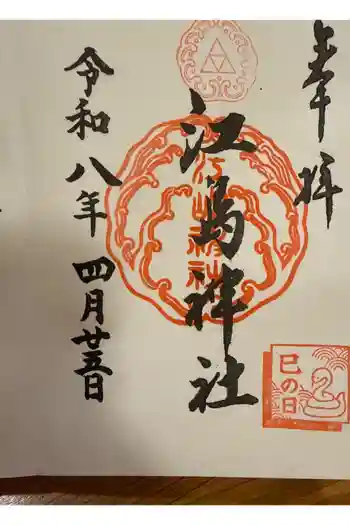 奉拝
江島神社
江島神社
巳の日
令和八年 四月廿五日